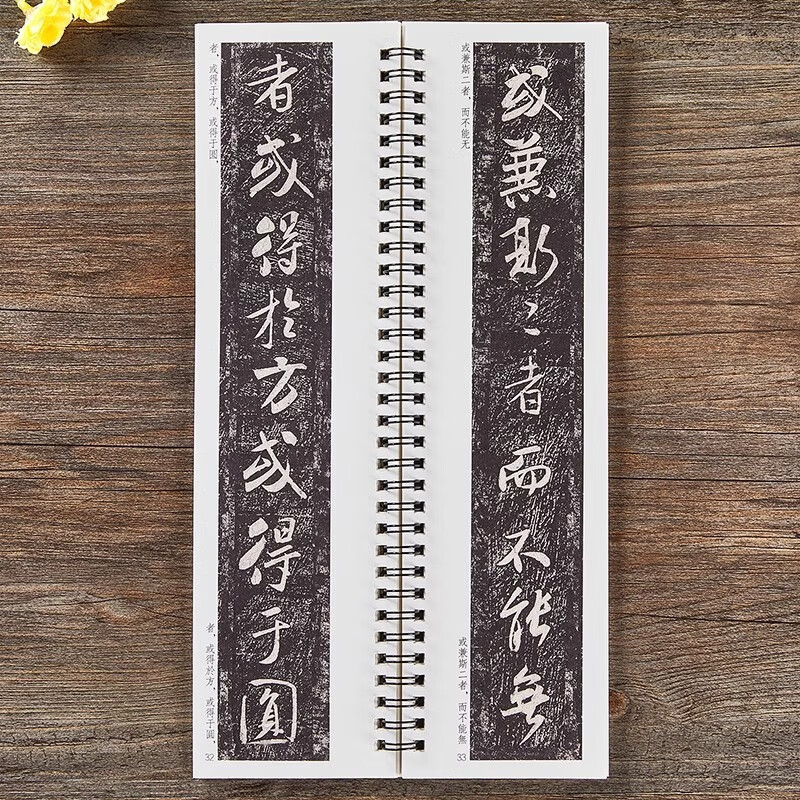 者，或得于方，或得于圆，
者或得於方或得于圓
者，或得於方，或得于圓，
32
或兼斯二者，而不能无
或兼斯二者而不能無
或兼斯二者，而不能無
33